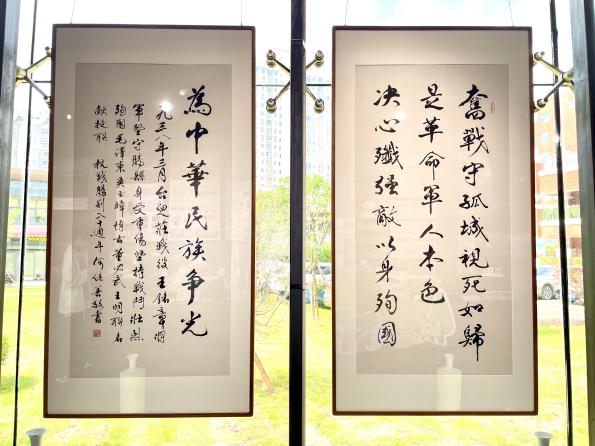 奮戰守孤城視死如歸
是革命軍人本色
决心殲强敵以身殉國
為中華民族争光
一九三八年三月台兒莊戰役王銘章將
軍堅守滕縣身受重傷坚持戰鬥壯烈
殉國毛澤東吴玉章博古董必武王明聯名
獻挽联 抗戰勝利八十週年何